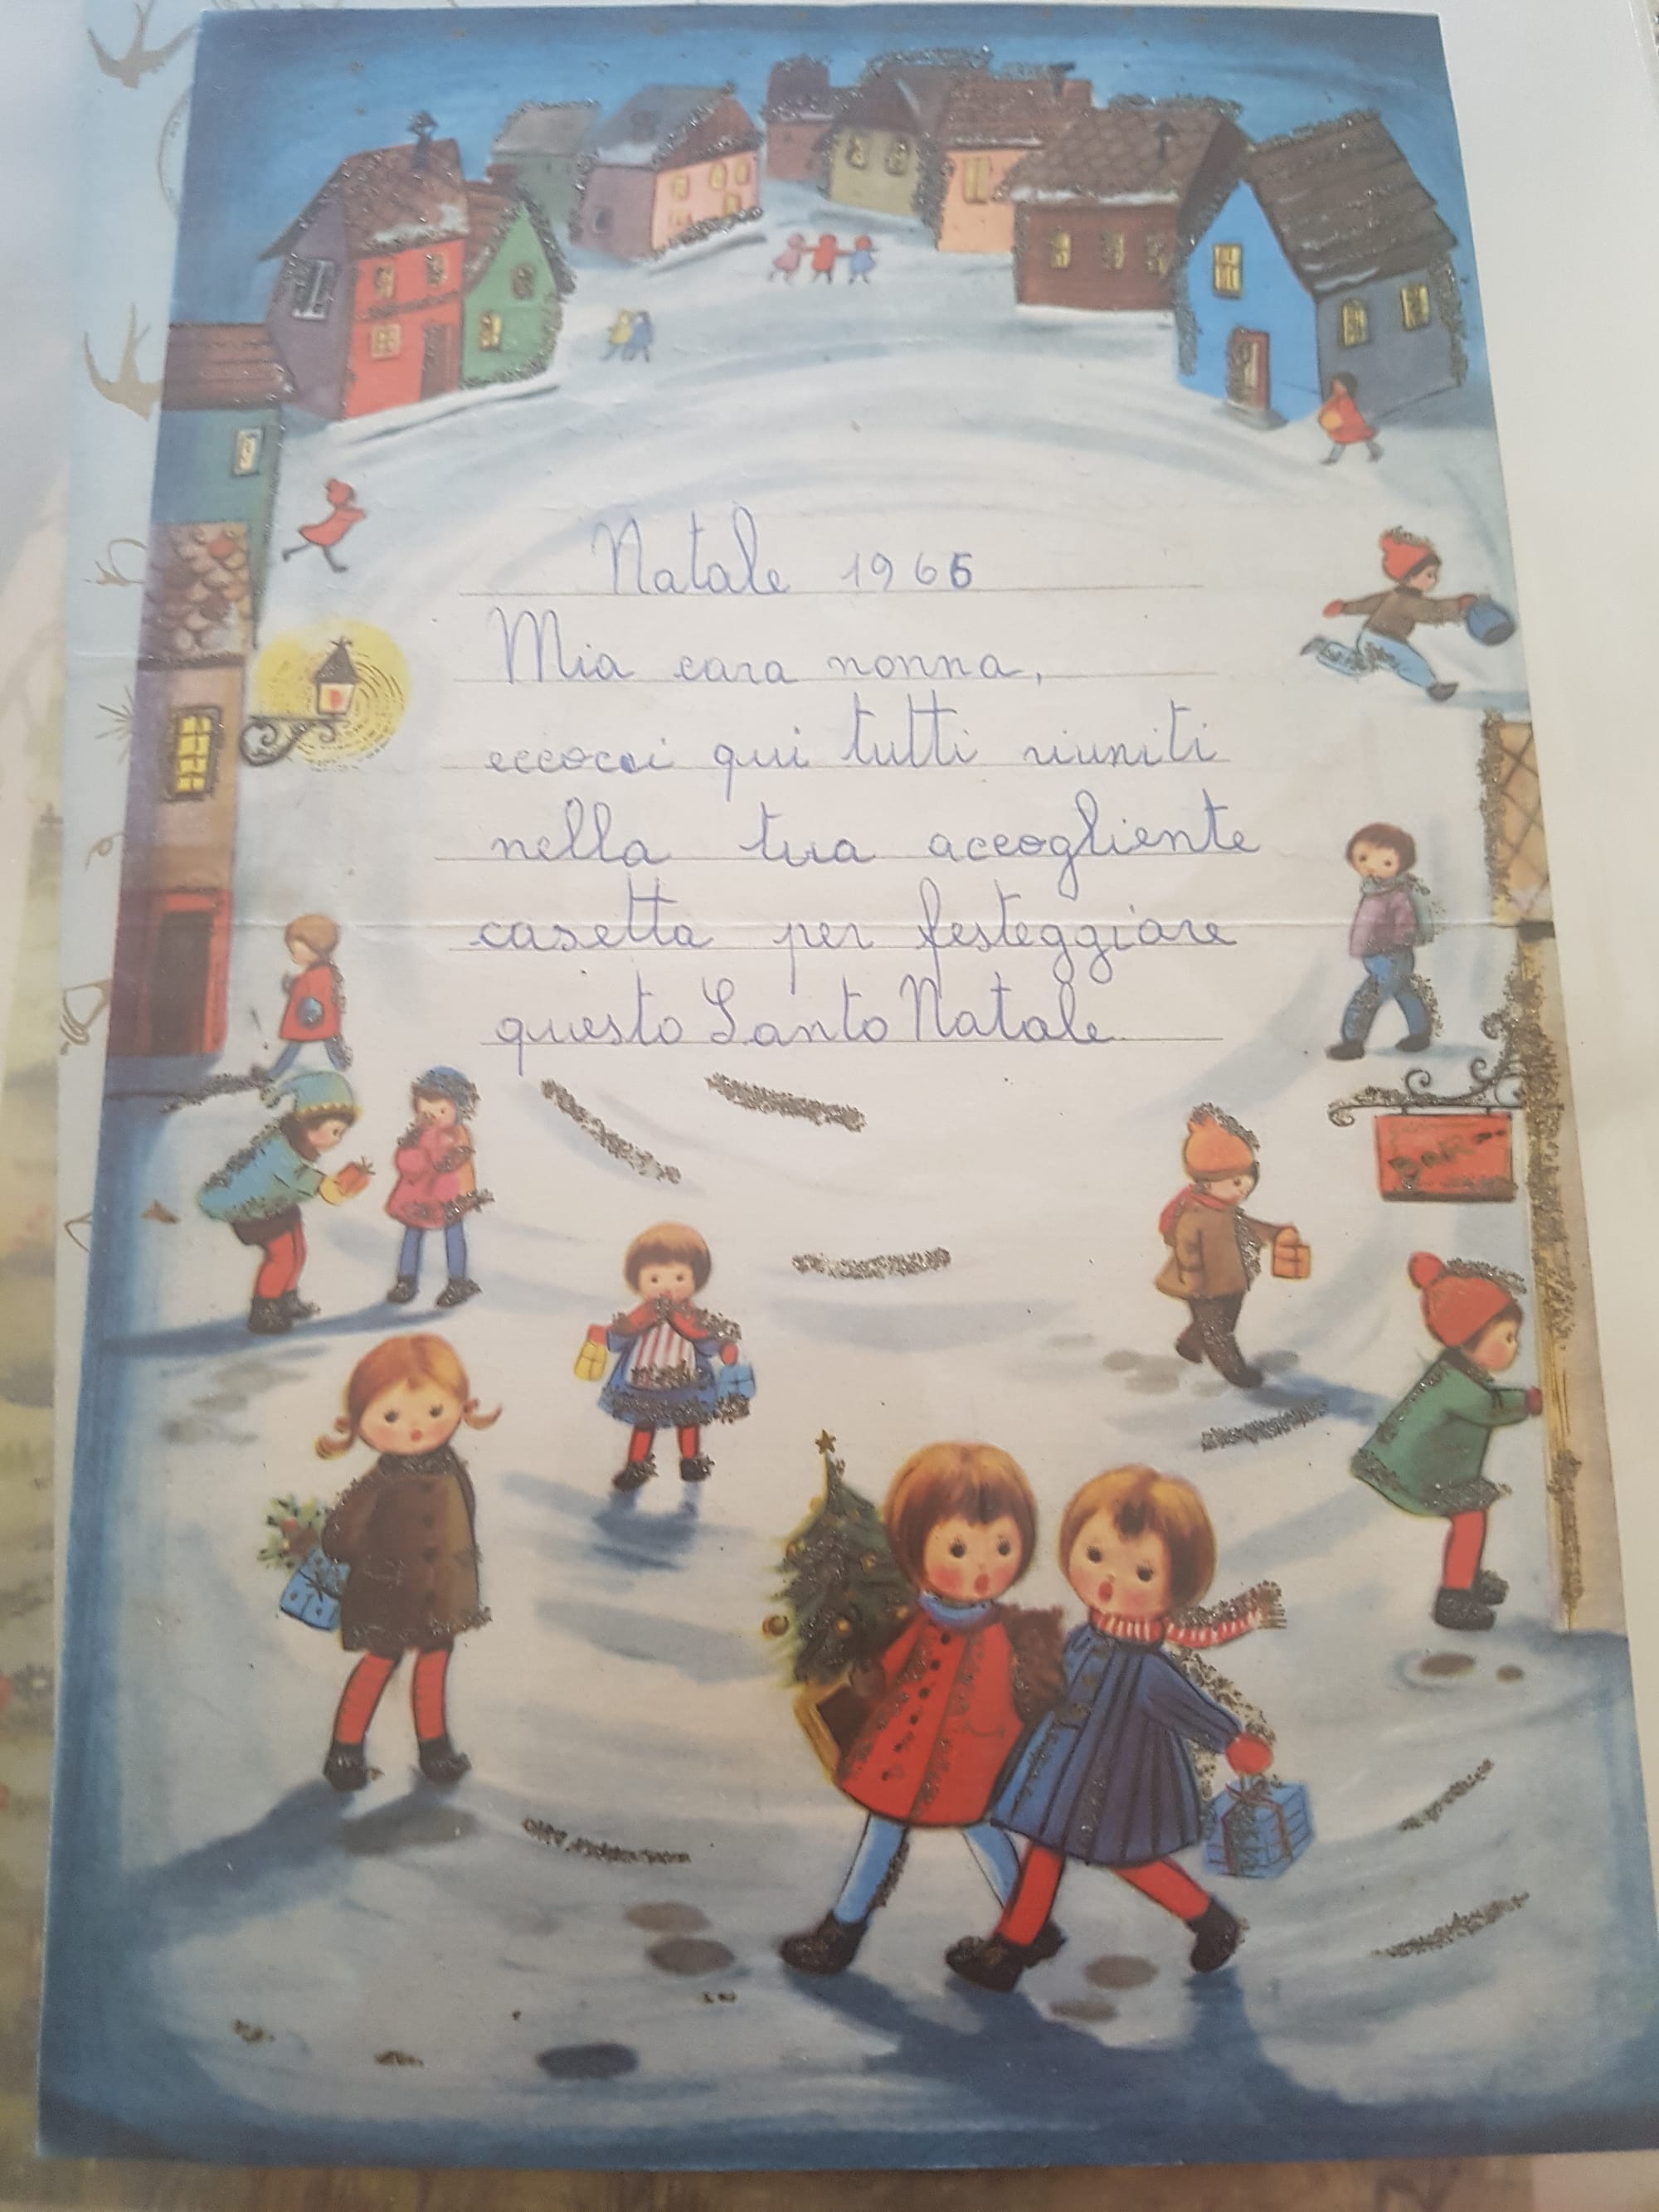 Natale 1966
Mia cara nonna,
eccoci qui tutti riuniti
nella tua accogliente
casetta per festeggiare
questo Santo Natale
BAR